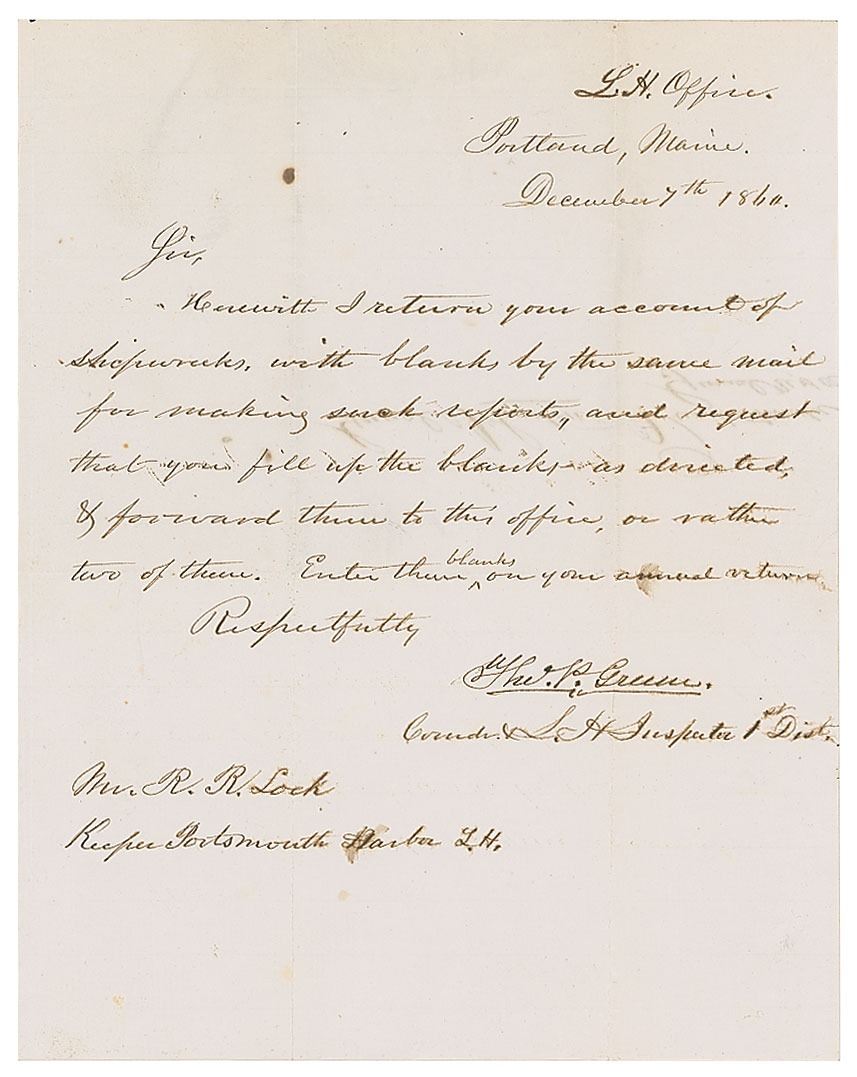 L. H. Office.
Portland, Maine.
December 7th 1860.
Sir,
Herewith I return your account of
shipwrecks, with blanks by the same mail
for making such reports, and request
that you fill up the blanks as directed,
& forward them to this office, or rather
two of them. Enter them blanks on your annual return
Respectfully
W. Thos. P. Greene.
Comdr. & L. H Inspector 1st Dist.
Mr. R. R. Lock
Keeper Portsmouth Harbor L.H.